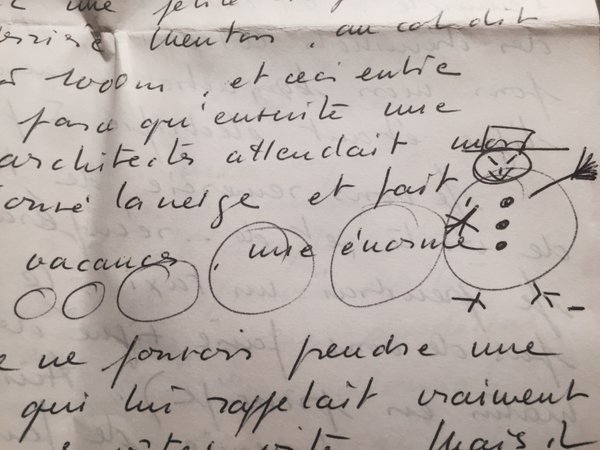 une petite
derrière Menton, au col dit
à 1000m, et ceci entre
parce qu'ensuite une
architectes attendait mon
la neige et fait
vacances, une énorme
ne pouvais prendre une
qui lui rappelait vraiment
Mais il